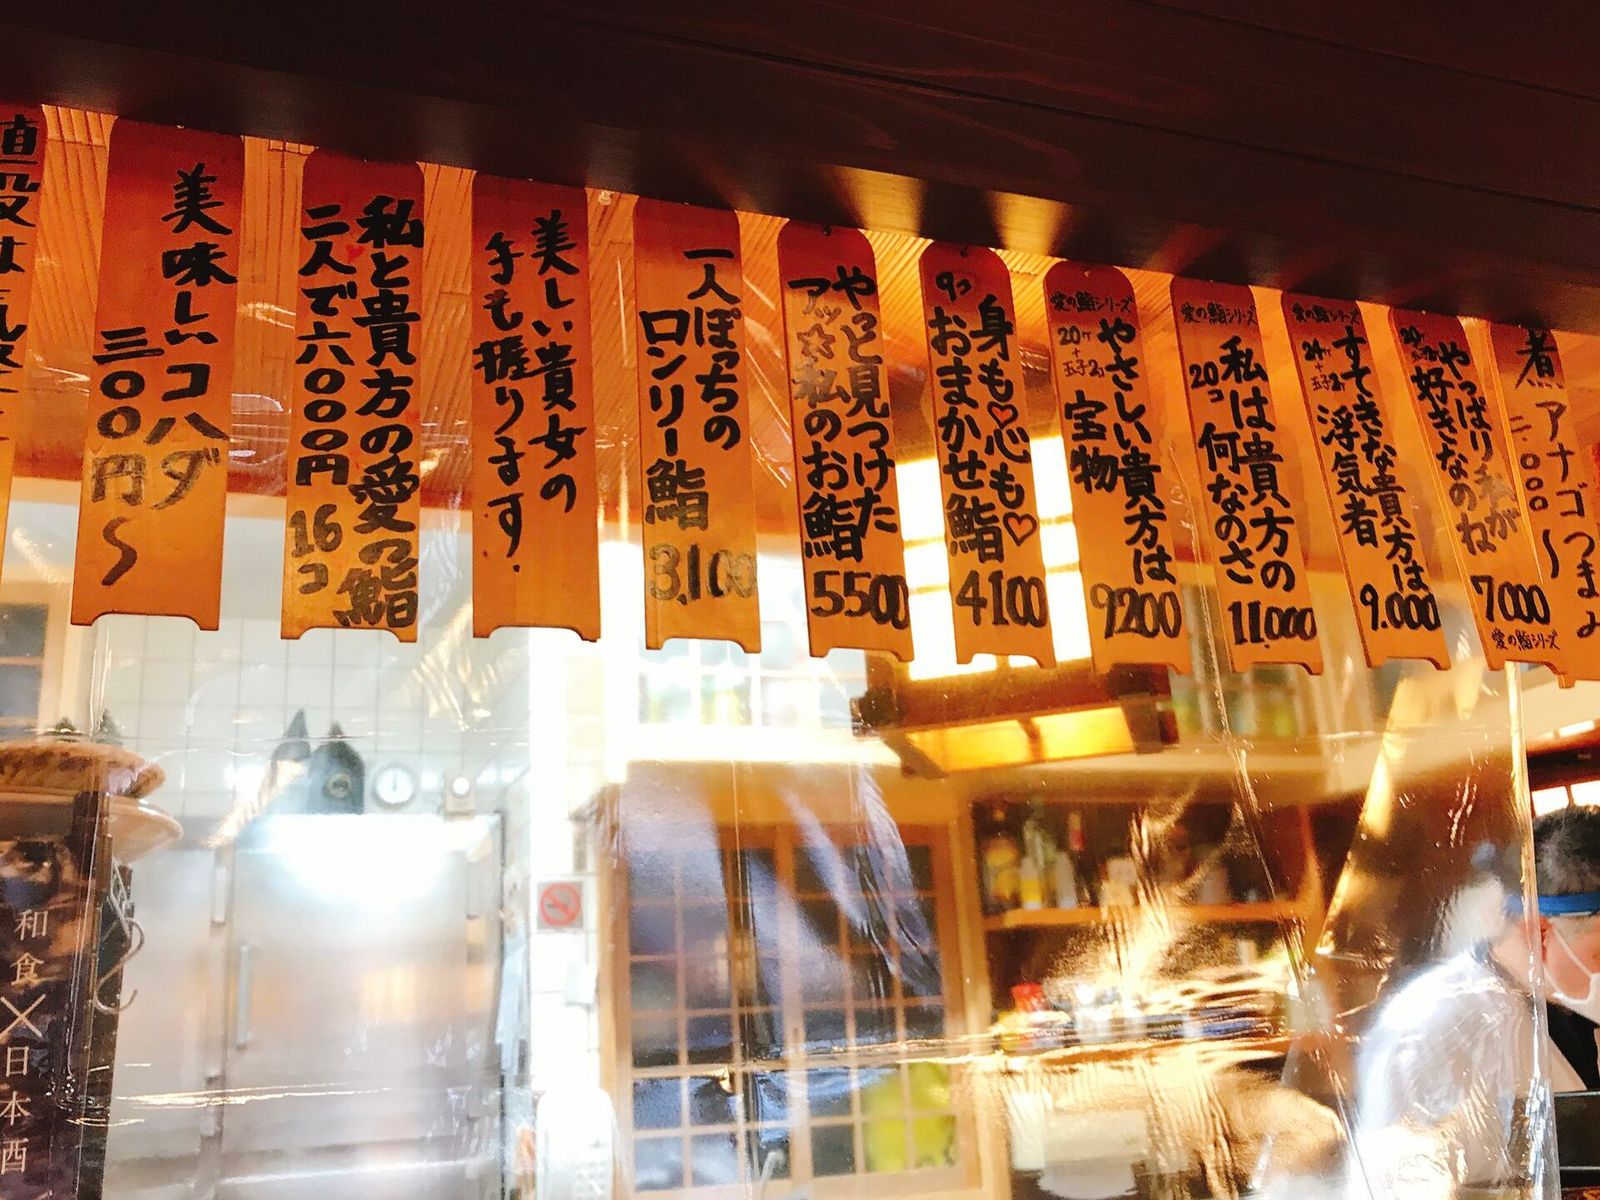 美味しいコハダ
三〇〇円～
私と貴方の愛の鮨
二人で六〇〇〇円
16コ
美しい貴女の
手も握ります.
一人ぼっちの
ロンリー鮨
3,100
やっと見つけた
アッ☆私のお鮨
5500
9コ
身も♡心も♡
おまかせ鮨
4100
愛の鮨シリーズ
20ケ
+
玉子2コ
やさしい貴方は
宝物
9200
愛の鮨シリーズ
20コ
私は貴方の
何なのさ
11.000
愛の鮨シリーズ
すてきな貴方は
浮気者
9.000
やっぱり私が
好きなのね
7000
愛の鮨シリーズ
煮アナゴつまみ
和食×日本酒